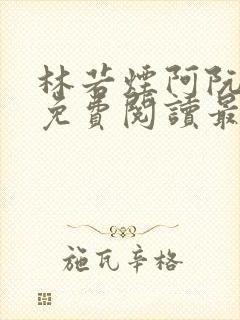 林若煙阿阮
免費閱讀最
施瓦辛格